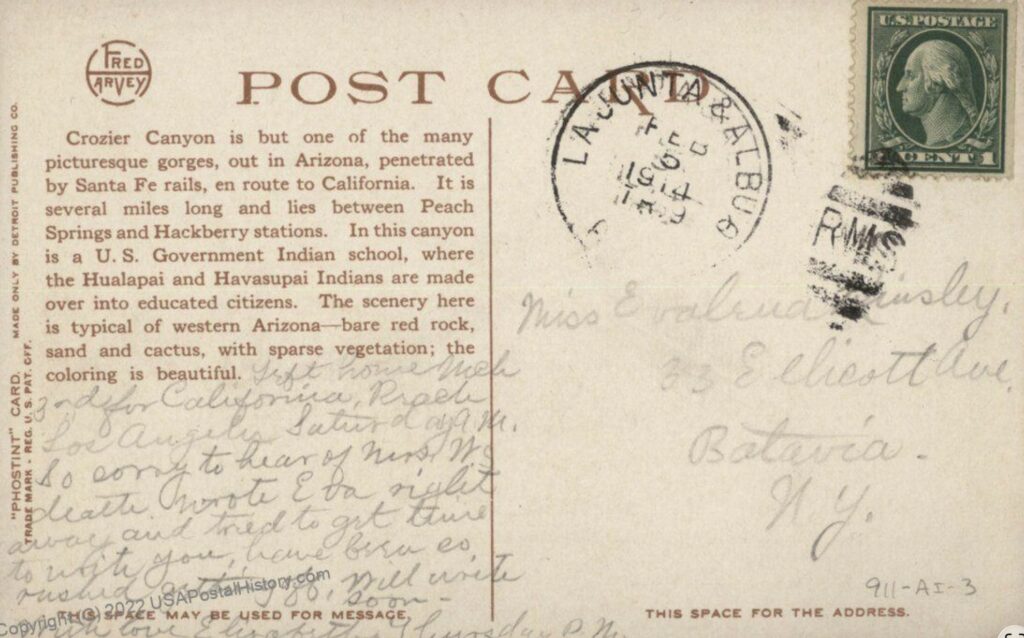 FRED
HARVEY
POST CARD
U.S. POSTAGE
1 CENT 1
LA JUNTA & ALBUQ
1914
RMS
Crozier Canyon is but one of the many
picturesque gorges, out in Arizona, penetrated
by Santa Fe rails, en route to California. It is
several miles long and lies between Peach
Springs and Hackberry stations. In this canyon
is a U. S. Government Indian school, where
the Hualapai and Havasupai Indians are made
over into educated citizens. The scenery here
is typical of western Arizona—bare red rock,
sand and cactus, with sparse vegetation; the
coloring is beautiful.
"PHOSTINT" CARD. MADE ONLY BY DETROIT PUBLISHING CO.
TRADE MARK - REG. U. S. PAT. OFF.
Left home Mch
3rd for California, Reach
Los Angeles Saturday A.M.
So sorry to hear of Mrs. W's
death wrote Eva right
away and tried to get time
to write you, have been so
rushed getting off, Will write
soon-
With love Elizabeth Thursday P.M.
Miss Evalena Kinsley,
33 Ellicott Ave,
Batavia -
N.Y.
911-AI-3
THIS SPACE MAY BE USED FOR MESSAGE.
THIS SPACE FOR THE ADDRESS.
Copyright (C) 2022 USAPostalHistory.com